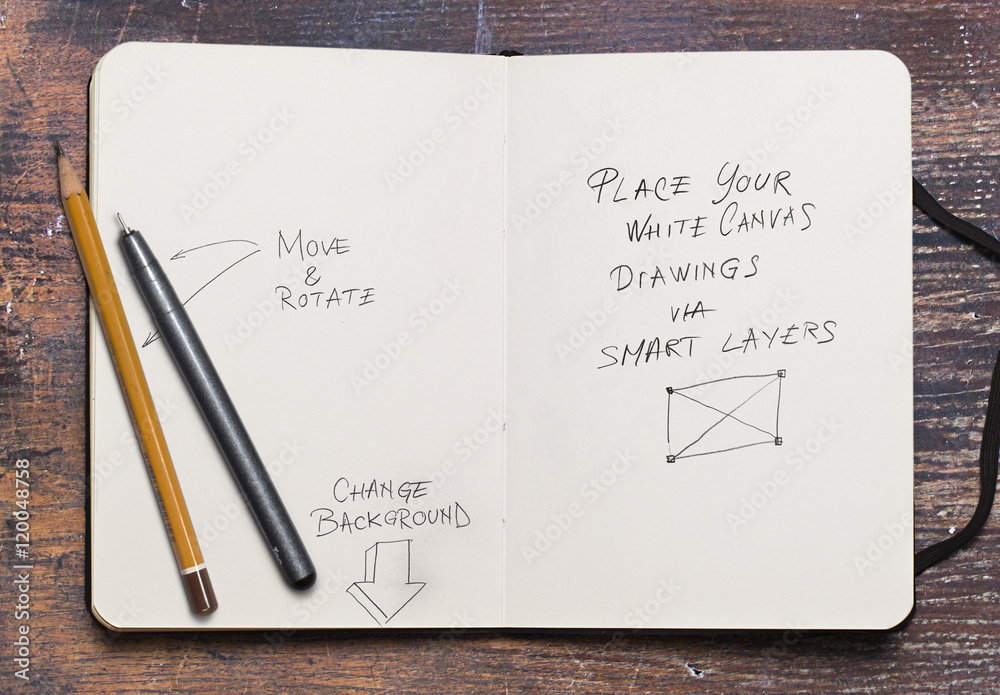 MOVE
&
ROTATE
CHANGE
BACKGROUND
PLACE YOUR
WHITE CANVAS
DRAWINGS
VIA
SMART LAYERS
Adobe Stock | #120048758
Adobe Stock